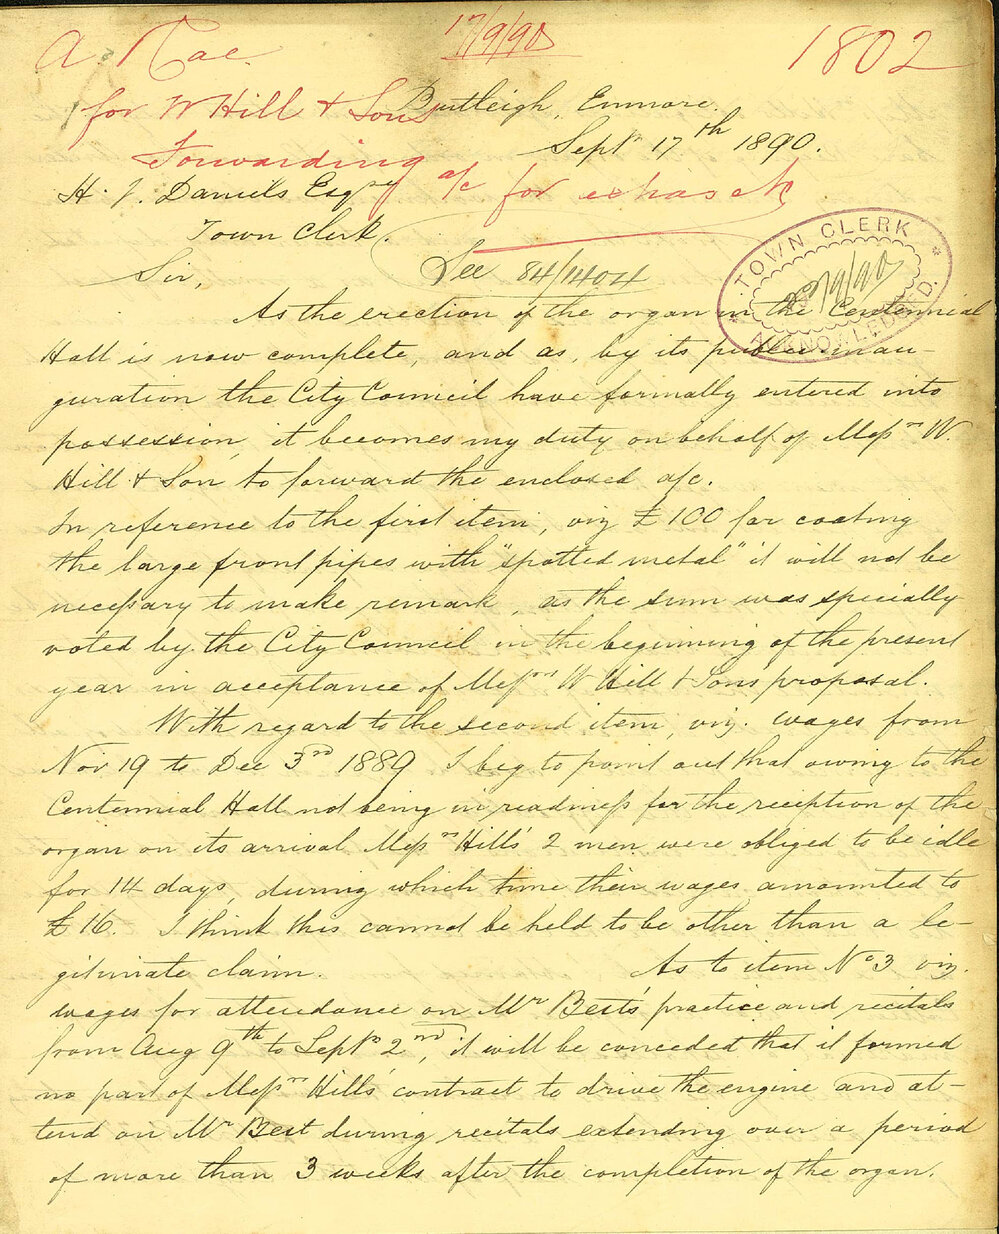 A Rae
17/9/90
1802
for W Hill & Sons
Forwarding
a/c for extras etc
Butleigh, Enmore.
Septr 17th 1890.
H. J. Daniels Esqre
Town Clerk.
See 84/1404
TOWN CLERK
/9/90
ACKNOWLEDGED.
Sir,
As the erection of the organ in the Centennial
Hall is now complete, and as, by its public inau-
guration the City Council have formally entered into
possession, it becomes my duty on behalf of Messrs W.
Hill & Son, to forward the enclosed a/c.
In reference to the first item, viz £100 for coating
the large front pipes with "spotted metal" it will not be
necessary to make remark, as the sum was specially
voted by the City Council in the beginning of the present
year in acceptance of Messrs W Hill & Sons proposal.
With regard to the second item, viz. wages from
Nov 19 to Dec 3rd 1889 I beg to point out that owing to the
Centennial Hall not being in readiness for the reception of the
organ on its arrival Messrs Hill's 2 men were obliged to be idle
for 14 days, during which time their wages amounted to
£16. I think this cannot be held to be other than a le-
gitimate claim. As to item No 3 viz.
wages for attendance on Mr Best's practice and recitals
from Aug 9th to Septr 2nd, it will be conceded that it formed
no part of Messrs Hills' contract to drive the engine and at-
tend on Mr Best during recitals extending over a period
of more than 3 weeks after the completion of the organ.